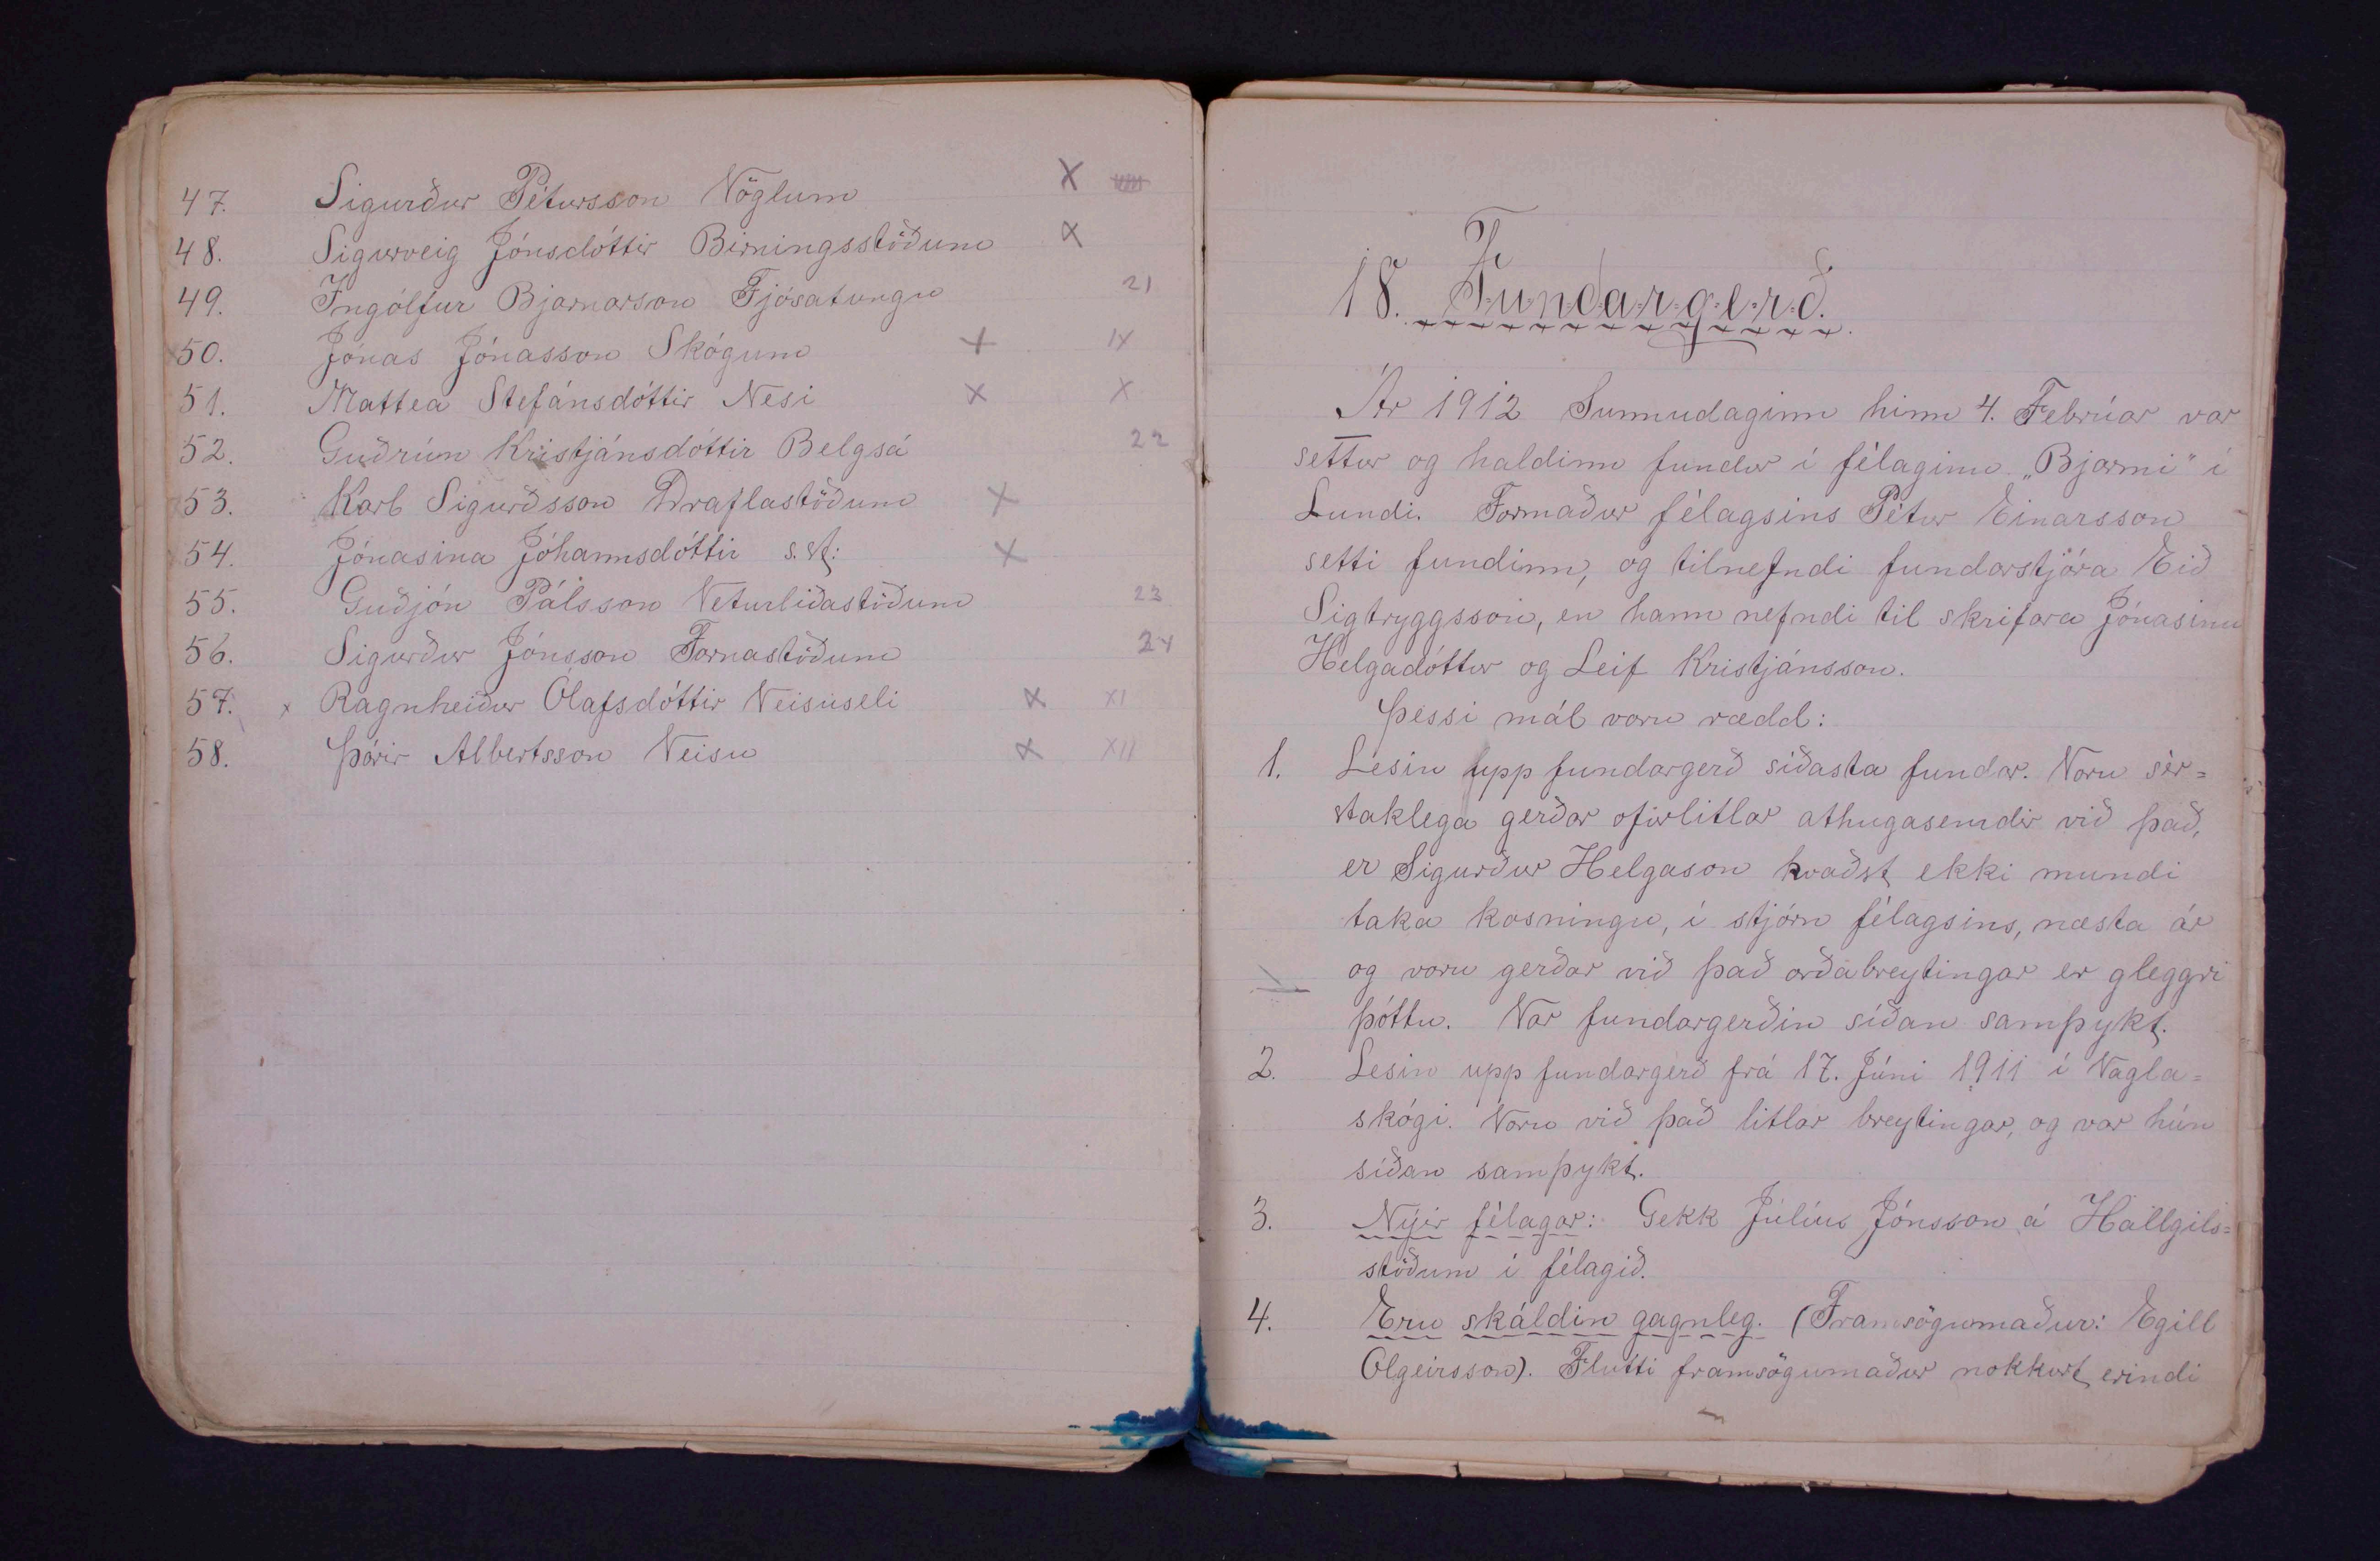 47. Sigurður Pétursson Vöglum X
48. Sigurveig Jónsdóttir Birningsstöðum X
49. Ingólfur Bjarnarson Fjósatungu 21
50. Jónas Jónasson Skógum X IX
51. Mattea Stefánsdóttir Nesi X X
52. Guðrún Kristjánsdóttir Belgsá 22
53. Karl Sigurðsson Draflastöðum X
54. Jónasina Jóhannsdóttir s.st: X
55. Guðjón Pálsson Veturliðastöðum 23
56. Sigurður Jónsson Fornastöðum 24
57. x Ragnheiður Ólafsdóttir Veisuseli X XI
58. Þórir Albertsson Veisu X XII
18. Fundargerð.
Ár 1912 Sunnudaginn hinn 4. Febrúar var
settur og haldinn fundur í félaginu „Bjarmi" í
Lundi. Formaður félagsins Pétur Einarsson
setti fundinn, og tilnefndi fundarstjóra Eið
Sigtryggsson, en hann nefndi til skrifara Jónasinu
Helgadóttur og Leif Kristjánsson.
Þessi mál voru rædd:
1. Lesin upp fundargerð síðasta fundar. Voru sér=
staklega gerðar ofurlitlar athugasemdir við það,
er Sigurður Helgason kvaðst ekki mundi
taka kosningu, í stjórn félagsins, næsta ár
og voru gerðar við það orðabreytingar er gleggri
þóttu. Var fundargerðin síðan samþykt.
2. Lesin upp fundargerð frá 17. Júni 1911 í Vagla=
skógi. Voru við það litlar breytingar, og var hún
síðan samþykt.
3. Nýir félagar: Gekk Július Jónsson á Hallgils=
stöðum í félagið.
4. Eru skáldin gagnleg. (Framsögumaður: Egill
Olgeirsson). Flutti framsögumaður nokkurt erindi